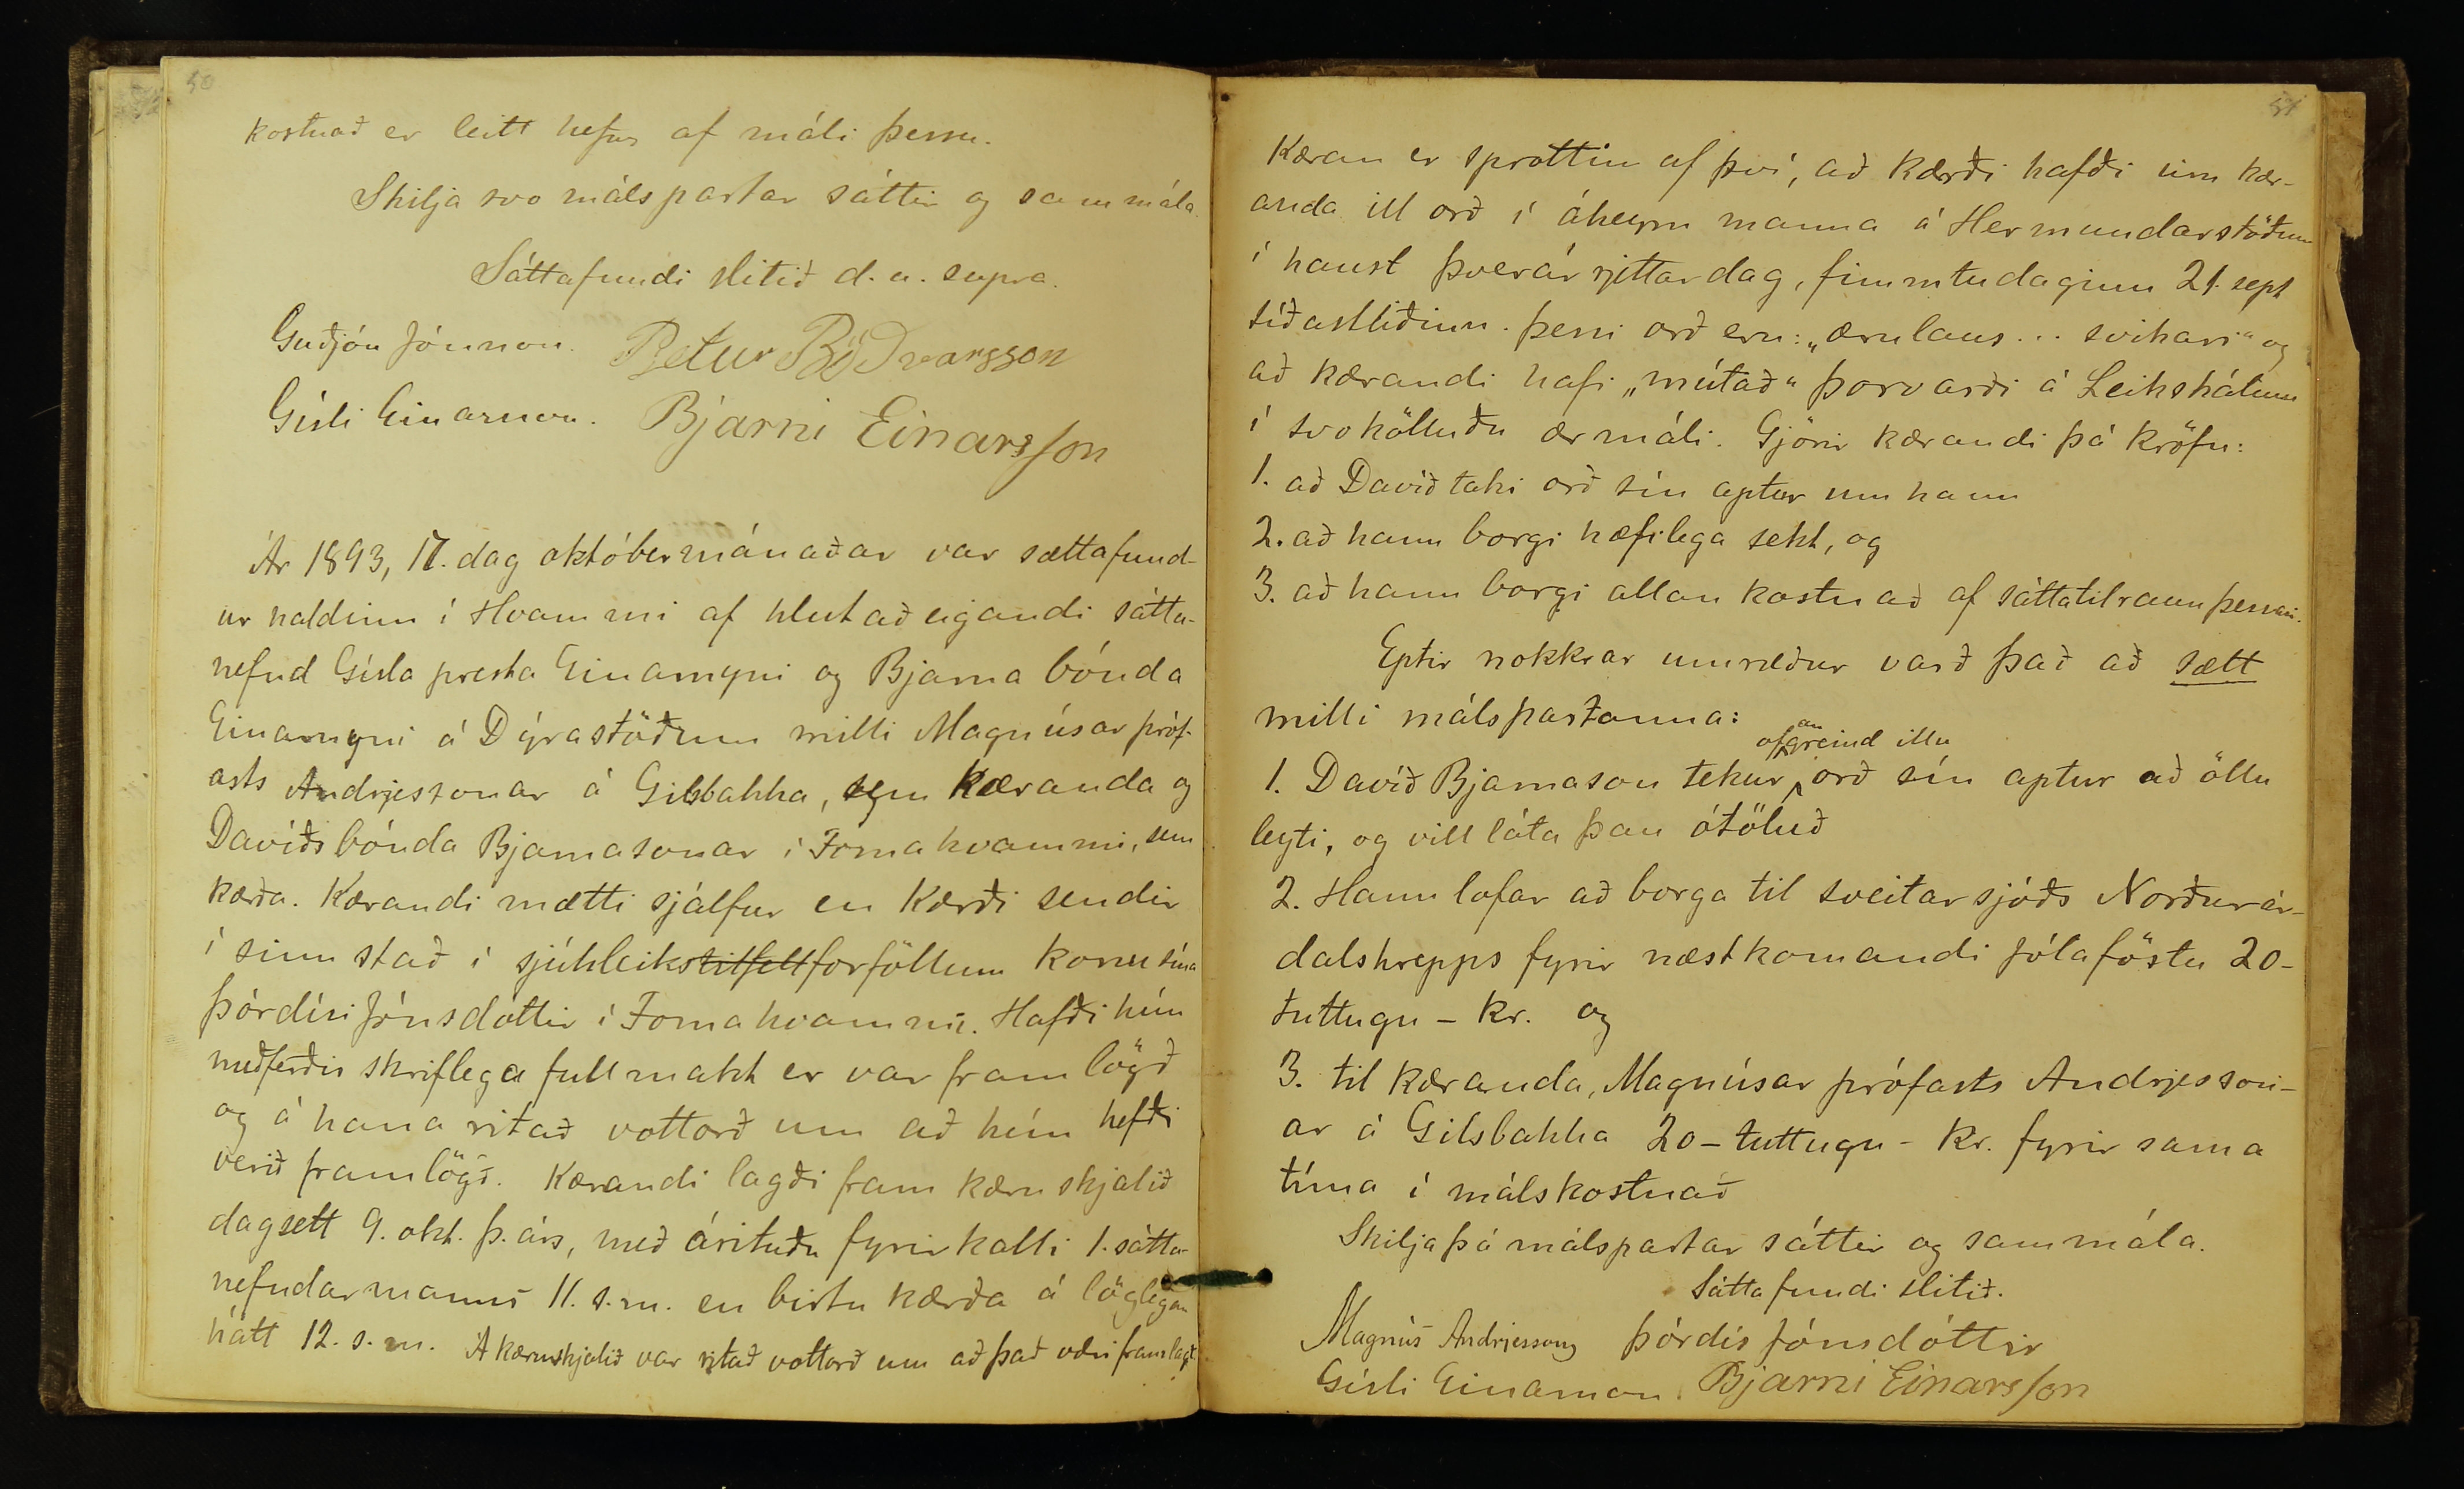 50
kostnað er leitt hefur af máli þessu.
Skilja svo málspartar sáttir og sammála.
Sáttafundi slitið d. u. supra.
Guðjón Jónsson. Pjetur Böðvarsson
Gísli Einarsson. Bjarni Einarsson
Ár 1893, 17. dag októbermánaðar var sættafund-
ur haldinn í Hvammi af hlutaðeigandi sátta-
nefnd Gísla presta Einarssyni og Bjarna bónda
Einarssyni á Dýrastöðum milli Magnúsar próf-
asts Andrjessonar á Gilsbakka, sem kæranda og
Davíðs bónda Bjarnasonar í Fornahvammi, sem
kærða. Kærandi mætti sjálfur en kærði sendir
í sinn stað í sjúkleikstilfellforföllum konu sína
Þórdísi Jónsdóttir í Fornahvammi. Hafði hún
meðferðis skriflega fullmakt er var framlögð
og á hana ritað vottorð um að hún hefði
verið framlögð. Kærandi lagði fram kæruskjalið
dagsett 9. okt. þ. árs, með árituðu fyrirkalli 1. sátta-
nefndarmanns 11. s. m. en birtu kærða á löglegan
hátt 12. s. m. Á kæruskjalið var ritað vottorð um að það væri framlagt.
51
Kæran er sprottin af því, að kærði hafði um kær-
anda ill orð í áheyrn manna á Hermundarstöðum
í haust Þverárrjettardag, fimmtudaginn 21. sept
síðastliðinn. Þessi orð eru: „ærulaus... svikari“ og
að kærandi hafi „mútað“ Þorvarði á Leikskálum
í svokölluðu ærmáli. Gjörir kærandi þá kröfu:
1. að Davíð taki orð sín aptur um hann
2. að hann borgi hæfilega sekt, og
3. að hann borgi allan kostnað af sáttatilraun þessari.
Eptir nokkrar umræður varð það að sætt
milli málspartanna:
ofangreind illu
1. Davíð Bjarnason tekur orð sín aptur að öllu
leyti, og vill láta þau ótöluð
2. Hann lofar að borga til sveitarsjóðs Norðurár-
dalshrepps fyrir næstkomandi jólaföstu 20-
tuttugu - kr. og
3. til kæranda, Magnúsar prófasts Andrjesson-
ar á Gilsbakka 20 - tuttugu - kr. fyrir sama
tíma í málskostnað
Skilja þá málspartar sáttir og sammála.
Sáttafundi slitið.
Magnús Andrjesson Þórdís Jónsdóttir
Gísli Einarsson. Bjarni Einarsson